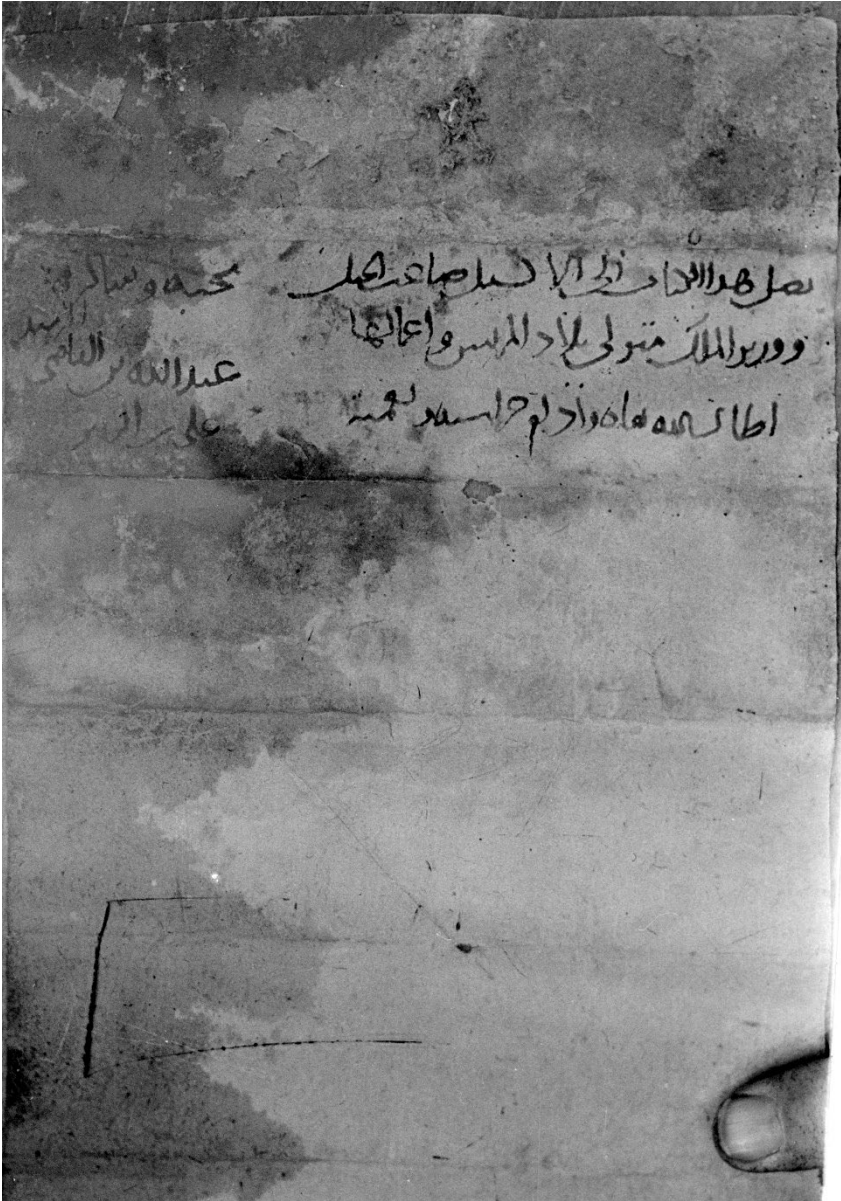 يصل هذا الكتاب الى الاكسيل صاحب الخيل
ووزير الملك متولى بلاد المريس واعمالها
اطال الله بقاه وادام حراسته ونعمته
محبه وشاكره
الامير
عبد الله بن القاضى
على بن الزبير